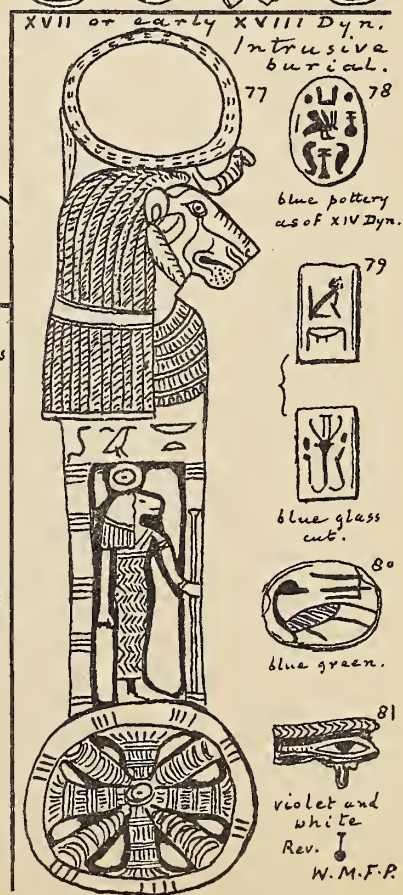 XVII or early XVIII Dyn.
Intrusive
burial.
77
78
blue pottery
as of XIV Dyn.
79
blue glass
cut.
80
blue green.
81
violet and
white
Rev.
W.M.F.P.